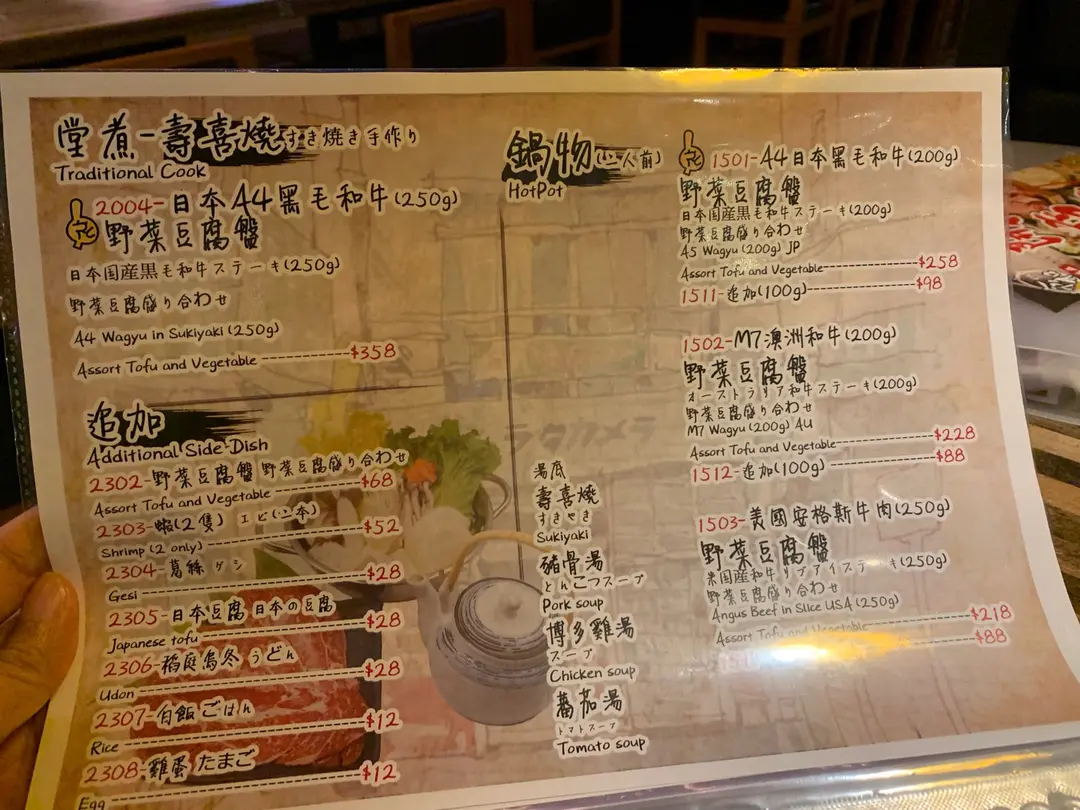 堂煮-壽喜燒すき焼き手作り
Traditional Cook
2004-日本A4黑毛和牛(250g)
野菜豆腐盤
日本国産黒毛和牛ステーキ(250g)
野菜豆腐盛り合わせ
A4 Wagyu in Sukiyaki (250g)
Assort Tofu and Vegetable $358
追加
Additional Side-Dish
2302-野菜豆腐盤 野菜豆腐盛り合わせ
Assort Tofu and Vegetable $68
2303-蝦(2隻) エビ(二本)
Shrimp (2 only) $52
2304-葛絲 ゲシ
Gesi $28
2305-日本豆腐 日本の豆腐
Japanese tofu $28
2306-稻庭烏冬 うどん
Udon $28
2307-白飯 ごはん
Rice $12
2308-雞蛋 たまご
Egg $12
鍋物(二人前)
HotPot
湯底
壽喜燒
すきやき
Sukiyaki
豬骨湯
とんこつスープ
Pork soup
博多雞湯
スープ
Chicken soup
蕃茄湯
トマトスープ
Tomato soup
1501-A4日本黑毛和牛(200g)
野菜豆腐盤
日本国産黒毛和牛ステーキ(200g)
野菜豆腐盛り合わせ
A5 Wagyu (200g) JP
Assort Tofu and Vegetable $258
1511-追加(100g) $98
1502-M7澳洲和牛(200g)
野菜豆腐盤
オーストラリア和牛ステーキ(200g)
野菜豆腐盛り合わせ
M7 Wagyu (200g) AU
Assort Tofu and Vegetable $228
1512-追加(100g) $88
1503-美國安格斯牛肉(250g)
野菜豆腐盤
米国産和牛リブアイステーキ(250g)
野菜豆腐盛り合わせ
Angus Beef in Slice USA (250g)
Assort Tofu and Vegetable $218
$88